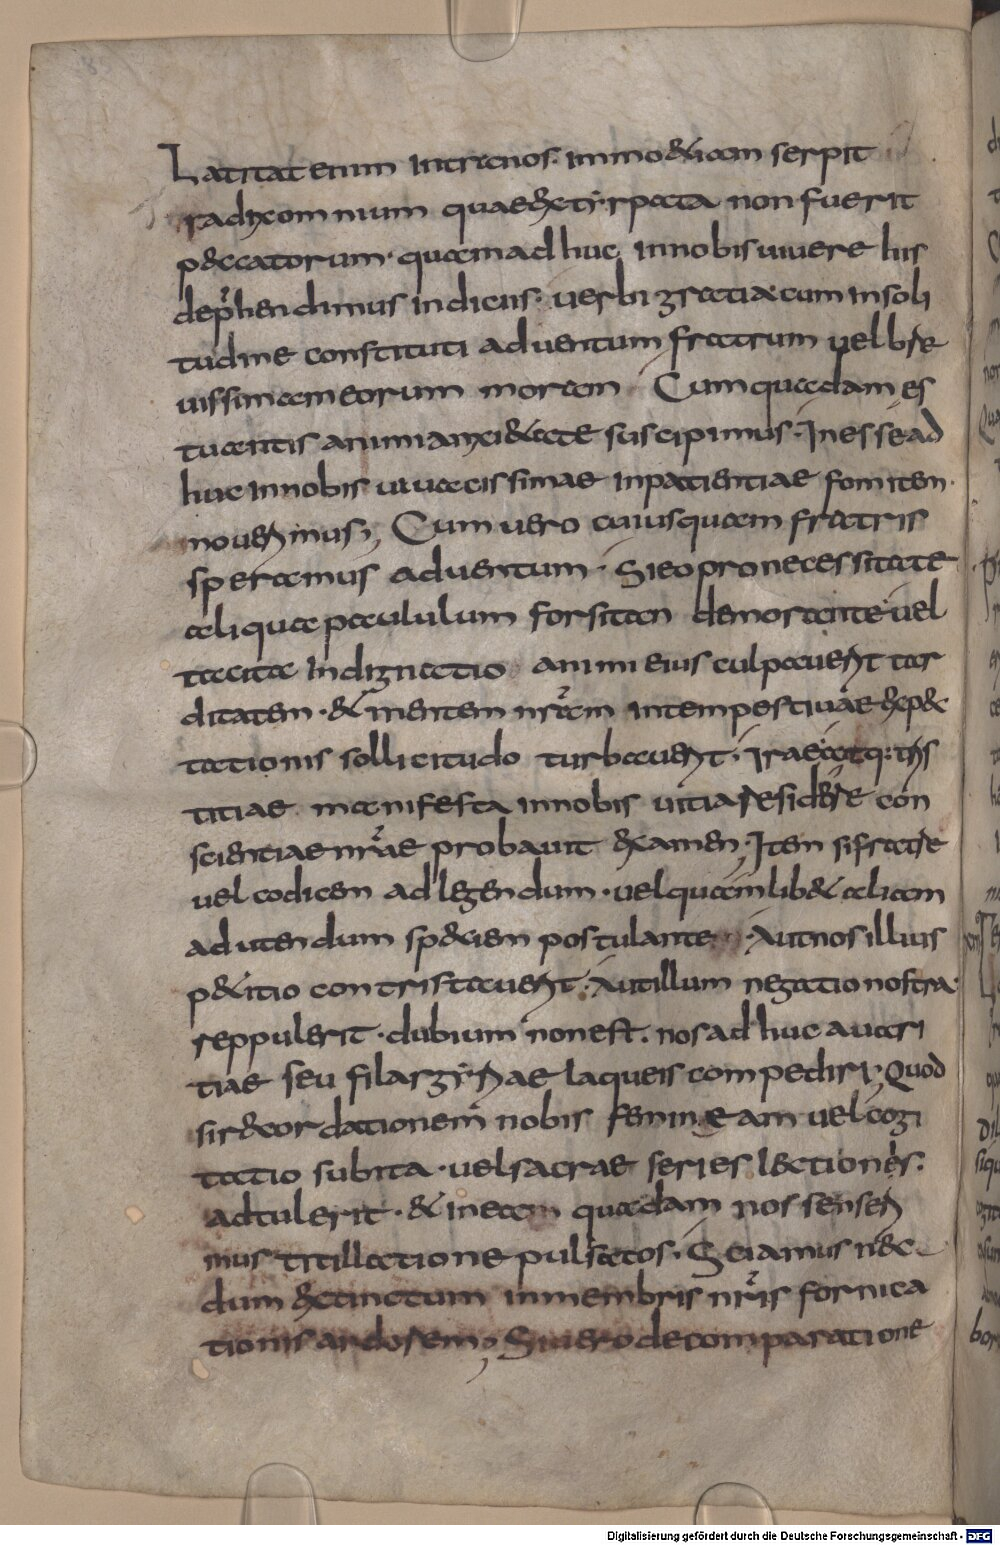 Latitat enim intra nos. immo & iam serpit
radix omnium quae extirpata non fuerit
peccatorum. quam adhuc in nobis vivere his
depͬhendimus indiciis. verbi gratia cum in soli
tudine constituti adventum fratrum vel bre
vissimam eorum moram Cum quadam es
tuantis animi anxi&ate suscipimus. Inesse ad
huc in nobis vivacissimae inpatientiae fomitem.
noverimus; Cum vero cuiusquam fratris
speramus adventum. Si eo pro necessitate
aliqua paululum forsitan demorante vel
tacita indignatio animi eius culpaverit tar
ditatem. & mentem nrͬam intempestivae expec
tationis sollicitudo turbaverit. irae atq: tris
titiae manifesta in nobis vitia residere con
scientiae nrͬae probavit examen. Item si fratre
vel codicem ad legendum. vel quamlib& aliam
ad utendum speciem postulante. Aut nos illius
p&itio contristaverit. Aut illum negatio nostra
reppulerit. dubium non est. nos adhuc avari
tiae seu filargyriae laqueis compediri; Quod
si recordationem nobis femineam vel cogi
tatio subita. vel sacrae series lectionis.
adtulerit. & in eam quadam nos senseri
mus titillatione pulsatos. Sciamus nec
dum extinctum in membris nrͬis fornica
tionis ardorem; Si vero de comparatione
Digitalisierung gefördert durch die Deutsche Forschungsgemeinschaft - DFG